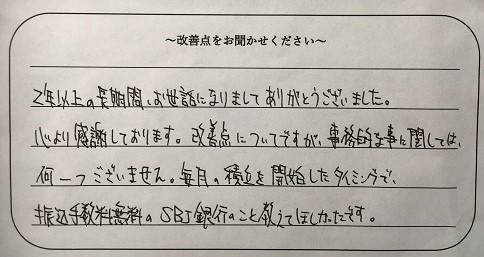 ～改善点をお聞かせください～
2年以上の長期間、お世話になりましてありがとうございました。
心より感謝しております。改善点についてですが、事務的な事に関しては、
何一つございません。毎月の積立を開始したタイミングで、
振込手数料無料のSBI銀行のこと教えてほしかったです。